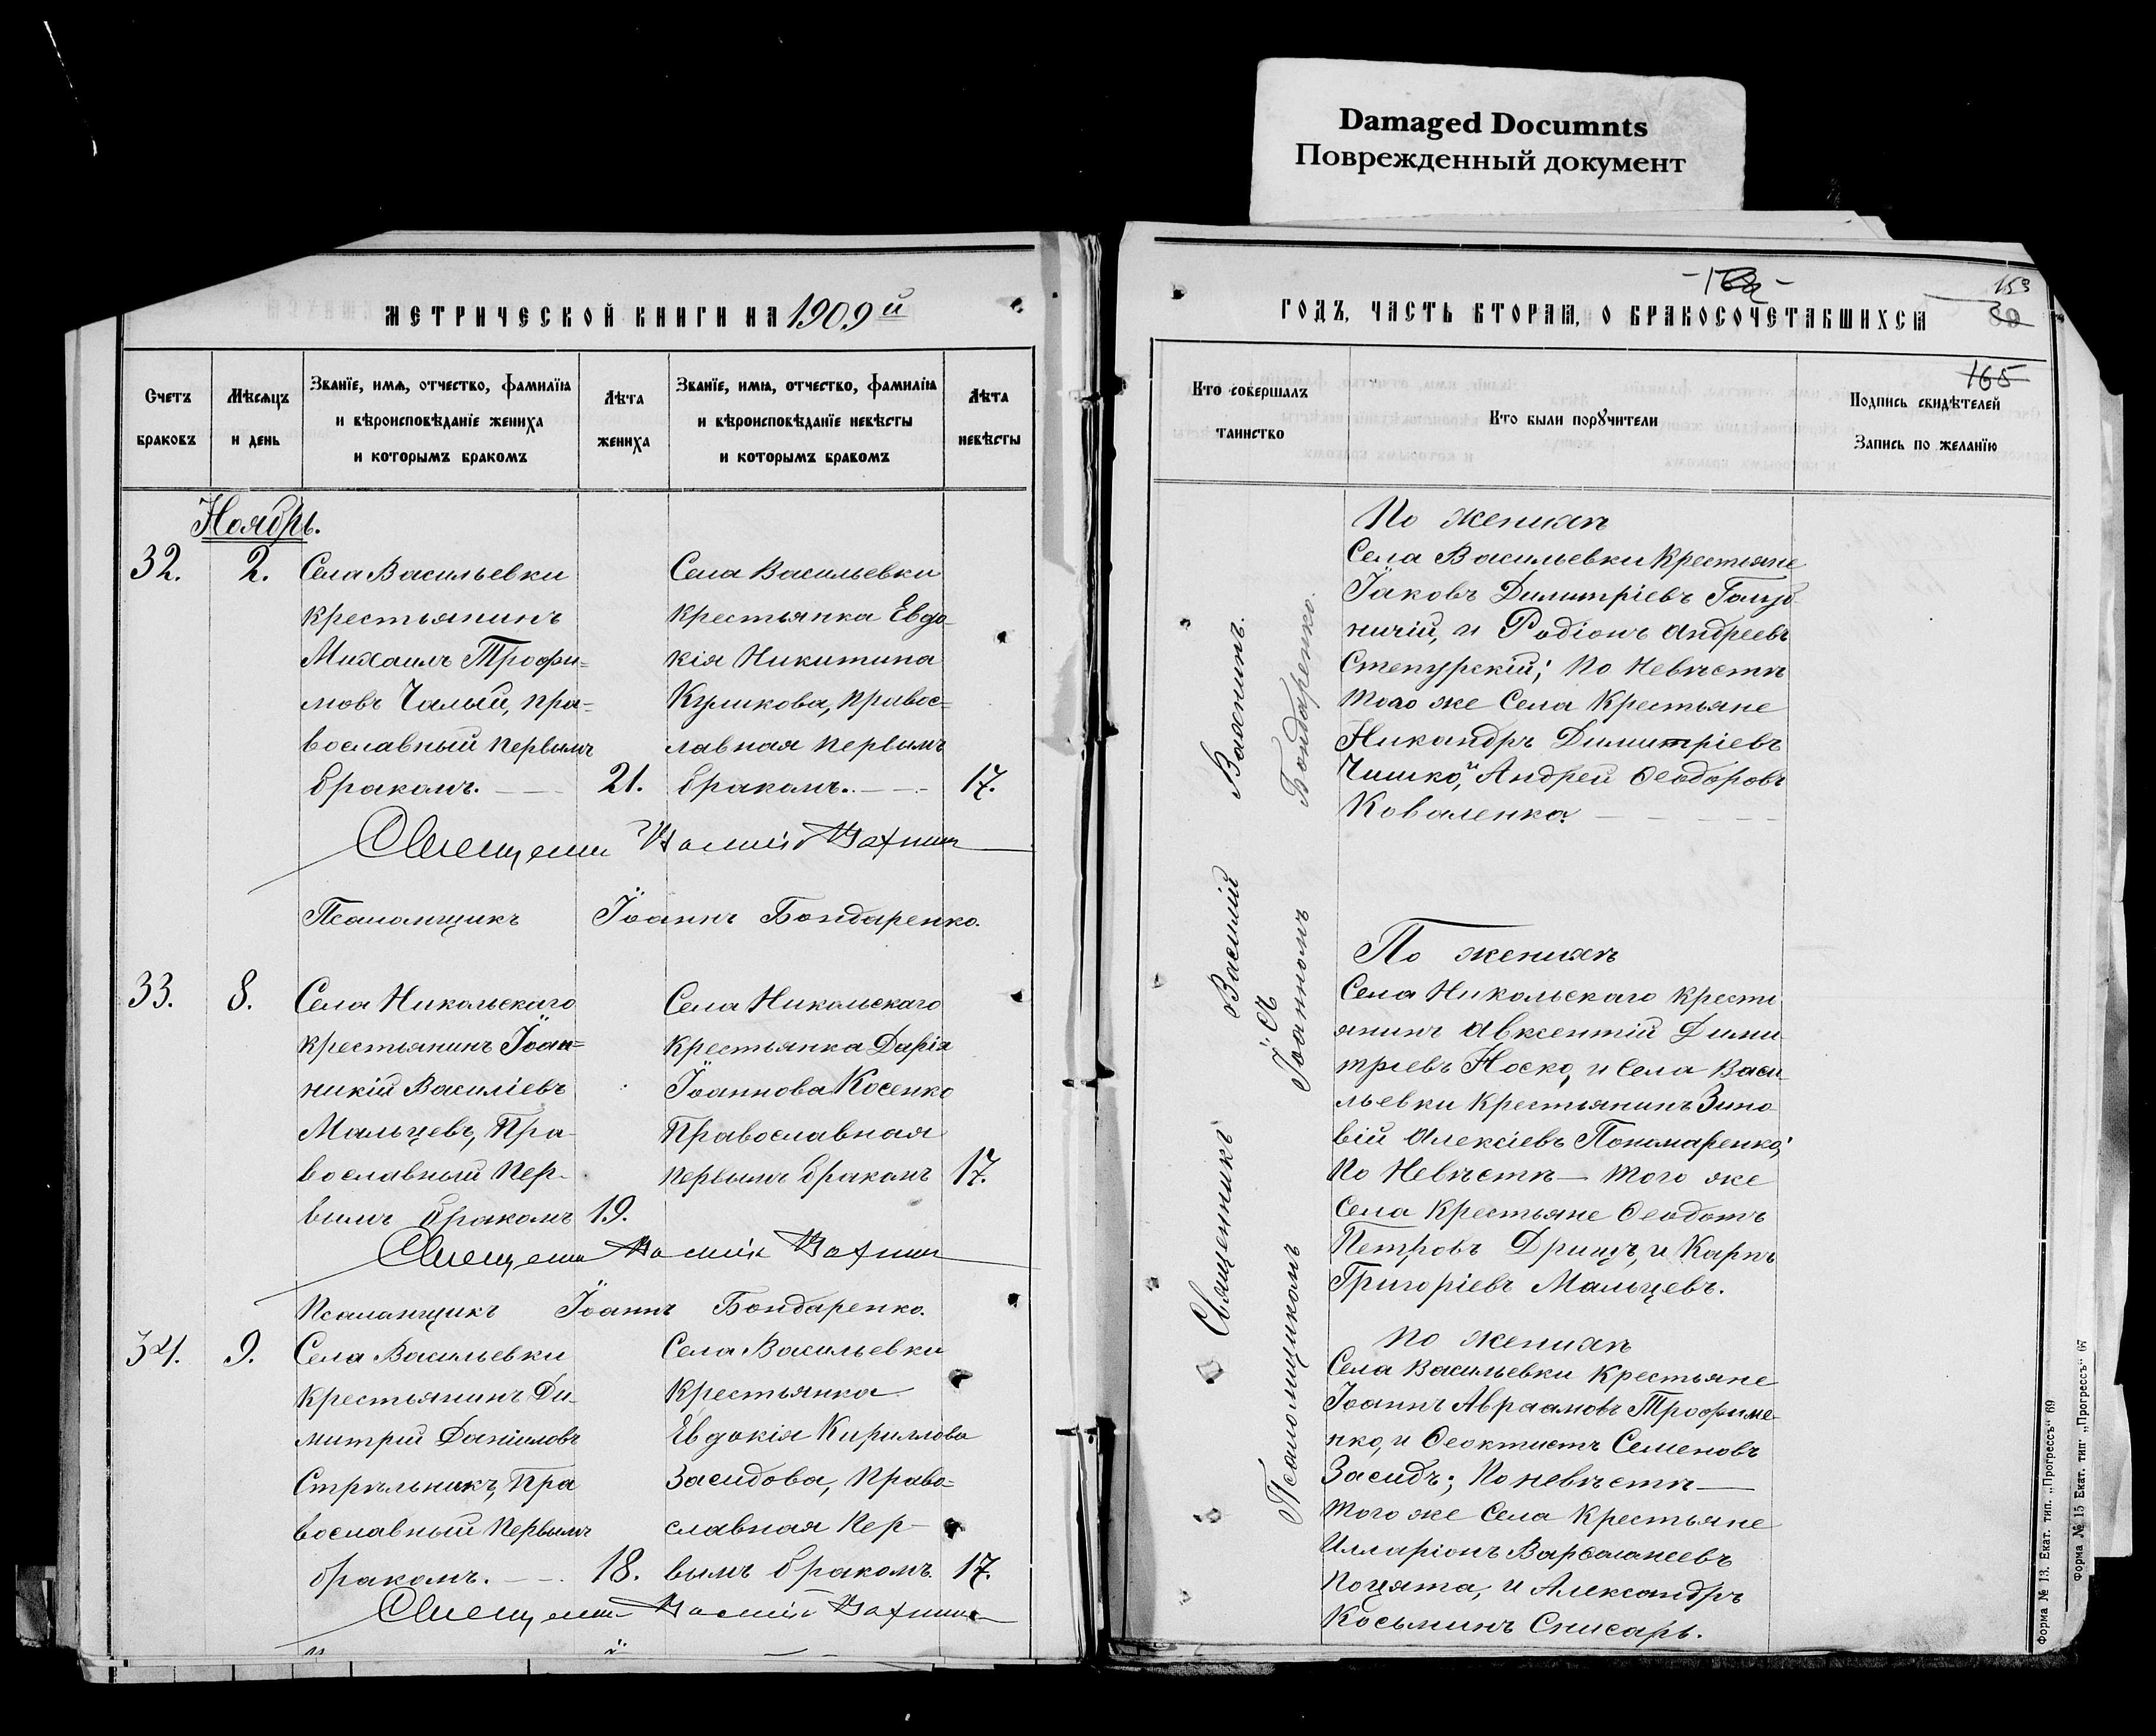 Damaged Documnts
Поврежденный документ
МЕТРИЧЕСКОЙ КНИГИ НА 1909й
Счетъ браковъ
Мѣсяцъ и день
Званїе, имѧ, отчество, фамилїꙗ
и вѣроисповѣданїе жениха
и которымъ бракомъ
Лѣта жениха
Званїе, имꙗ, отчество, фамилїꙗ
и вѣроисповѣданїе невѣсты
и которымъ бракомъ
Лѣта невѣсты
Ноябрь.
32. 2.
Села Васильевки
крестьянинъ
Михаилъ Трофи=
мовъ Чалый, пра=
вославный первымъ
бракомъ. 21.
Села Васильевки
крестьянка Евдо-
кія Никитина
Куликова, правос=
лавная первымъ
бракомъ. 17.
Священникъ Василій Вахнинъ
Псаломщикъ Іоаннъ Бондаренко.
33. 8.
Села Никольскаго
крестьянинъ Іоан=
никій Василіевъ
Мальцевъ, Пра-
вославный пер-
вымъ бракомъ 19.
Села Никольскаго
крестьянка Дарія
Іоаннова Косенко
Православная
первымъ бракомъ 17.
Священникъ Василій Вахнинъ
Псаломщикъ Іоаннъ Бондаренко.
34. 9.
Села Васильевки
крестьянинъ Ди-
митрій Даніиловъ
Стрѣльникъ, Пра
вославный первымъ
бракомъ. 18.
Села Васильевки
крестьянка
Евдокія Кириллова
Засидова, право=
славная пер-
вымъ бракомъ. 17.
Священникъ Василій Вахнинъ
159
80
165
ГОДЪ, ЧАСТЬ ВТОРАЯ, О БРАКОСОЧЕТАВШИХСЯ
Кто совершалъ
таинство
Кто были порꙋчители
Подпись свидѣтелей
Запись по желанїю
Священникъ Василій Вахнинъ.
съ
Псаломщикомъ Іоанномъ Бондаренко.
По женихѣ
Села Васильевки крестьяне
Іаковъ Димитріевъ Голуб
ничій, и Родіонъ Андреевъ
Степурскій; по Невѣстѣ
того же Села Крестьяне
Никандръ Димитріевъ
Чишко, и Андрей Ѳеодоровъ
Коваленко.
По женихѣ
Села Никольскаго крести
янинъ Авксентій Дими
тріевъ Носко, и Села Васи
льевки Крестьянинъ Зино
вій Алексіевъ Пономаренко;
по Невѣстѣ — того же
Села Крестьяне Ѳеодотъ
Петровъ Дрищъ, и Карпъ
Григоріевъ Мальцевъ.
По женихѣ
Села Васильевки Крестьяне
Іоаннъ Авраамовъ Трофиме-
нко, и Ѳеоктистъ Семеновъ
Засидъ; По невѣстѣ —
того же Села Крестьяне
Илларіонъ Варѳоломеевъ
Поцята, и Александръ
Косьминъ Снисарь.
Форма № 13. Екат. тип. „Прогрессъ“ 69
Форма № 15 Екат. тип. „Прогрессъ“ 67